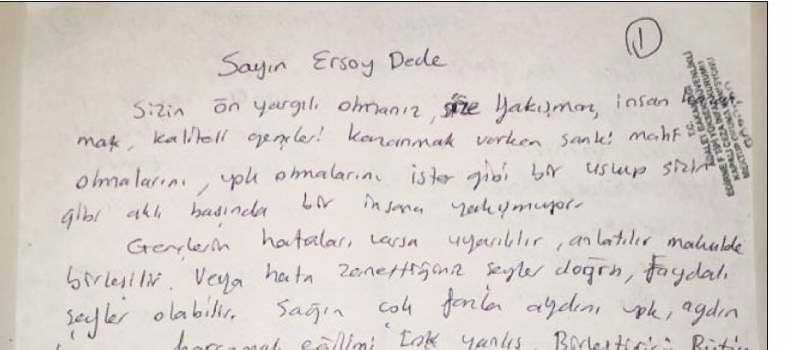 1
Sayın Ersoy Dede
Sizin ön yargılı olmanız, size yakışmaz, insan
mak, kaliteli gençleri kazanmak varken sanki mahf
olmalarını, yok olmalarını ister gibi bir uslup sizin
gibi aklı başında bir insana yakışmıyor.
Gençlerin hataları varsa uyarılır, anlatılır makulde
birleşilir. Veya hata zannettiğiniz şeyler doğru, faydalı
şeyler olabilir. Sağın çok fazla aydını yok, aydın
harcamak eğilimi çok yanlış. Birleştirici Bütün